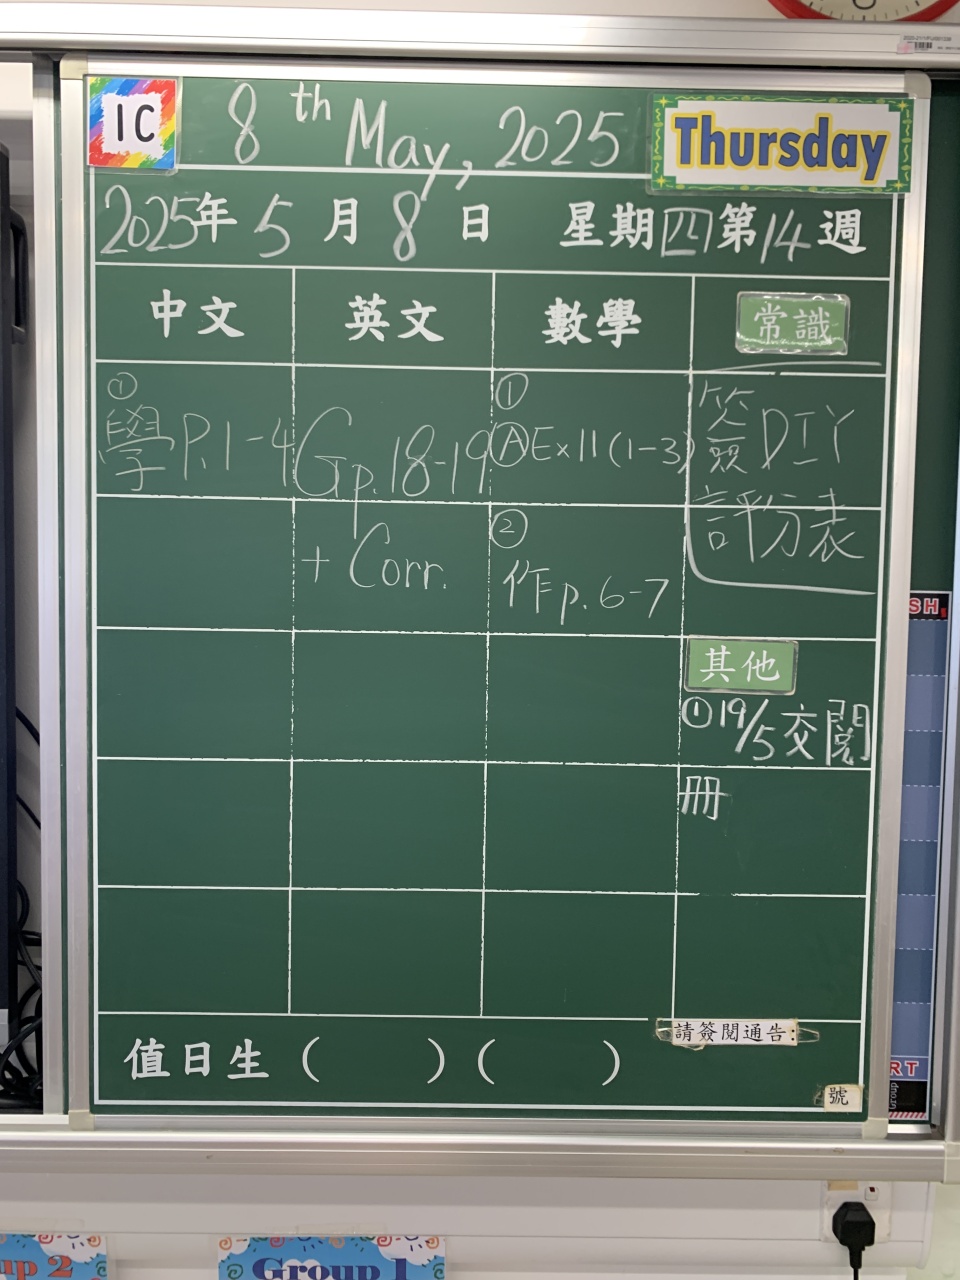 1C
8th May, 2025
Thursday
2025年5月8日 星期四第14週
中文 英文 數學 常識
①
學P.1-4
Gp.18-19
+ Corr.
①
Ⓐ Ex11(1-3)
②
作p.6-7
簽DIY
評分表
其他
①19/5交閱
冊
請簽閱通告:
值日生 ( ) ( )
號
SH
RT
up 2
Group 1